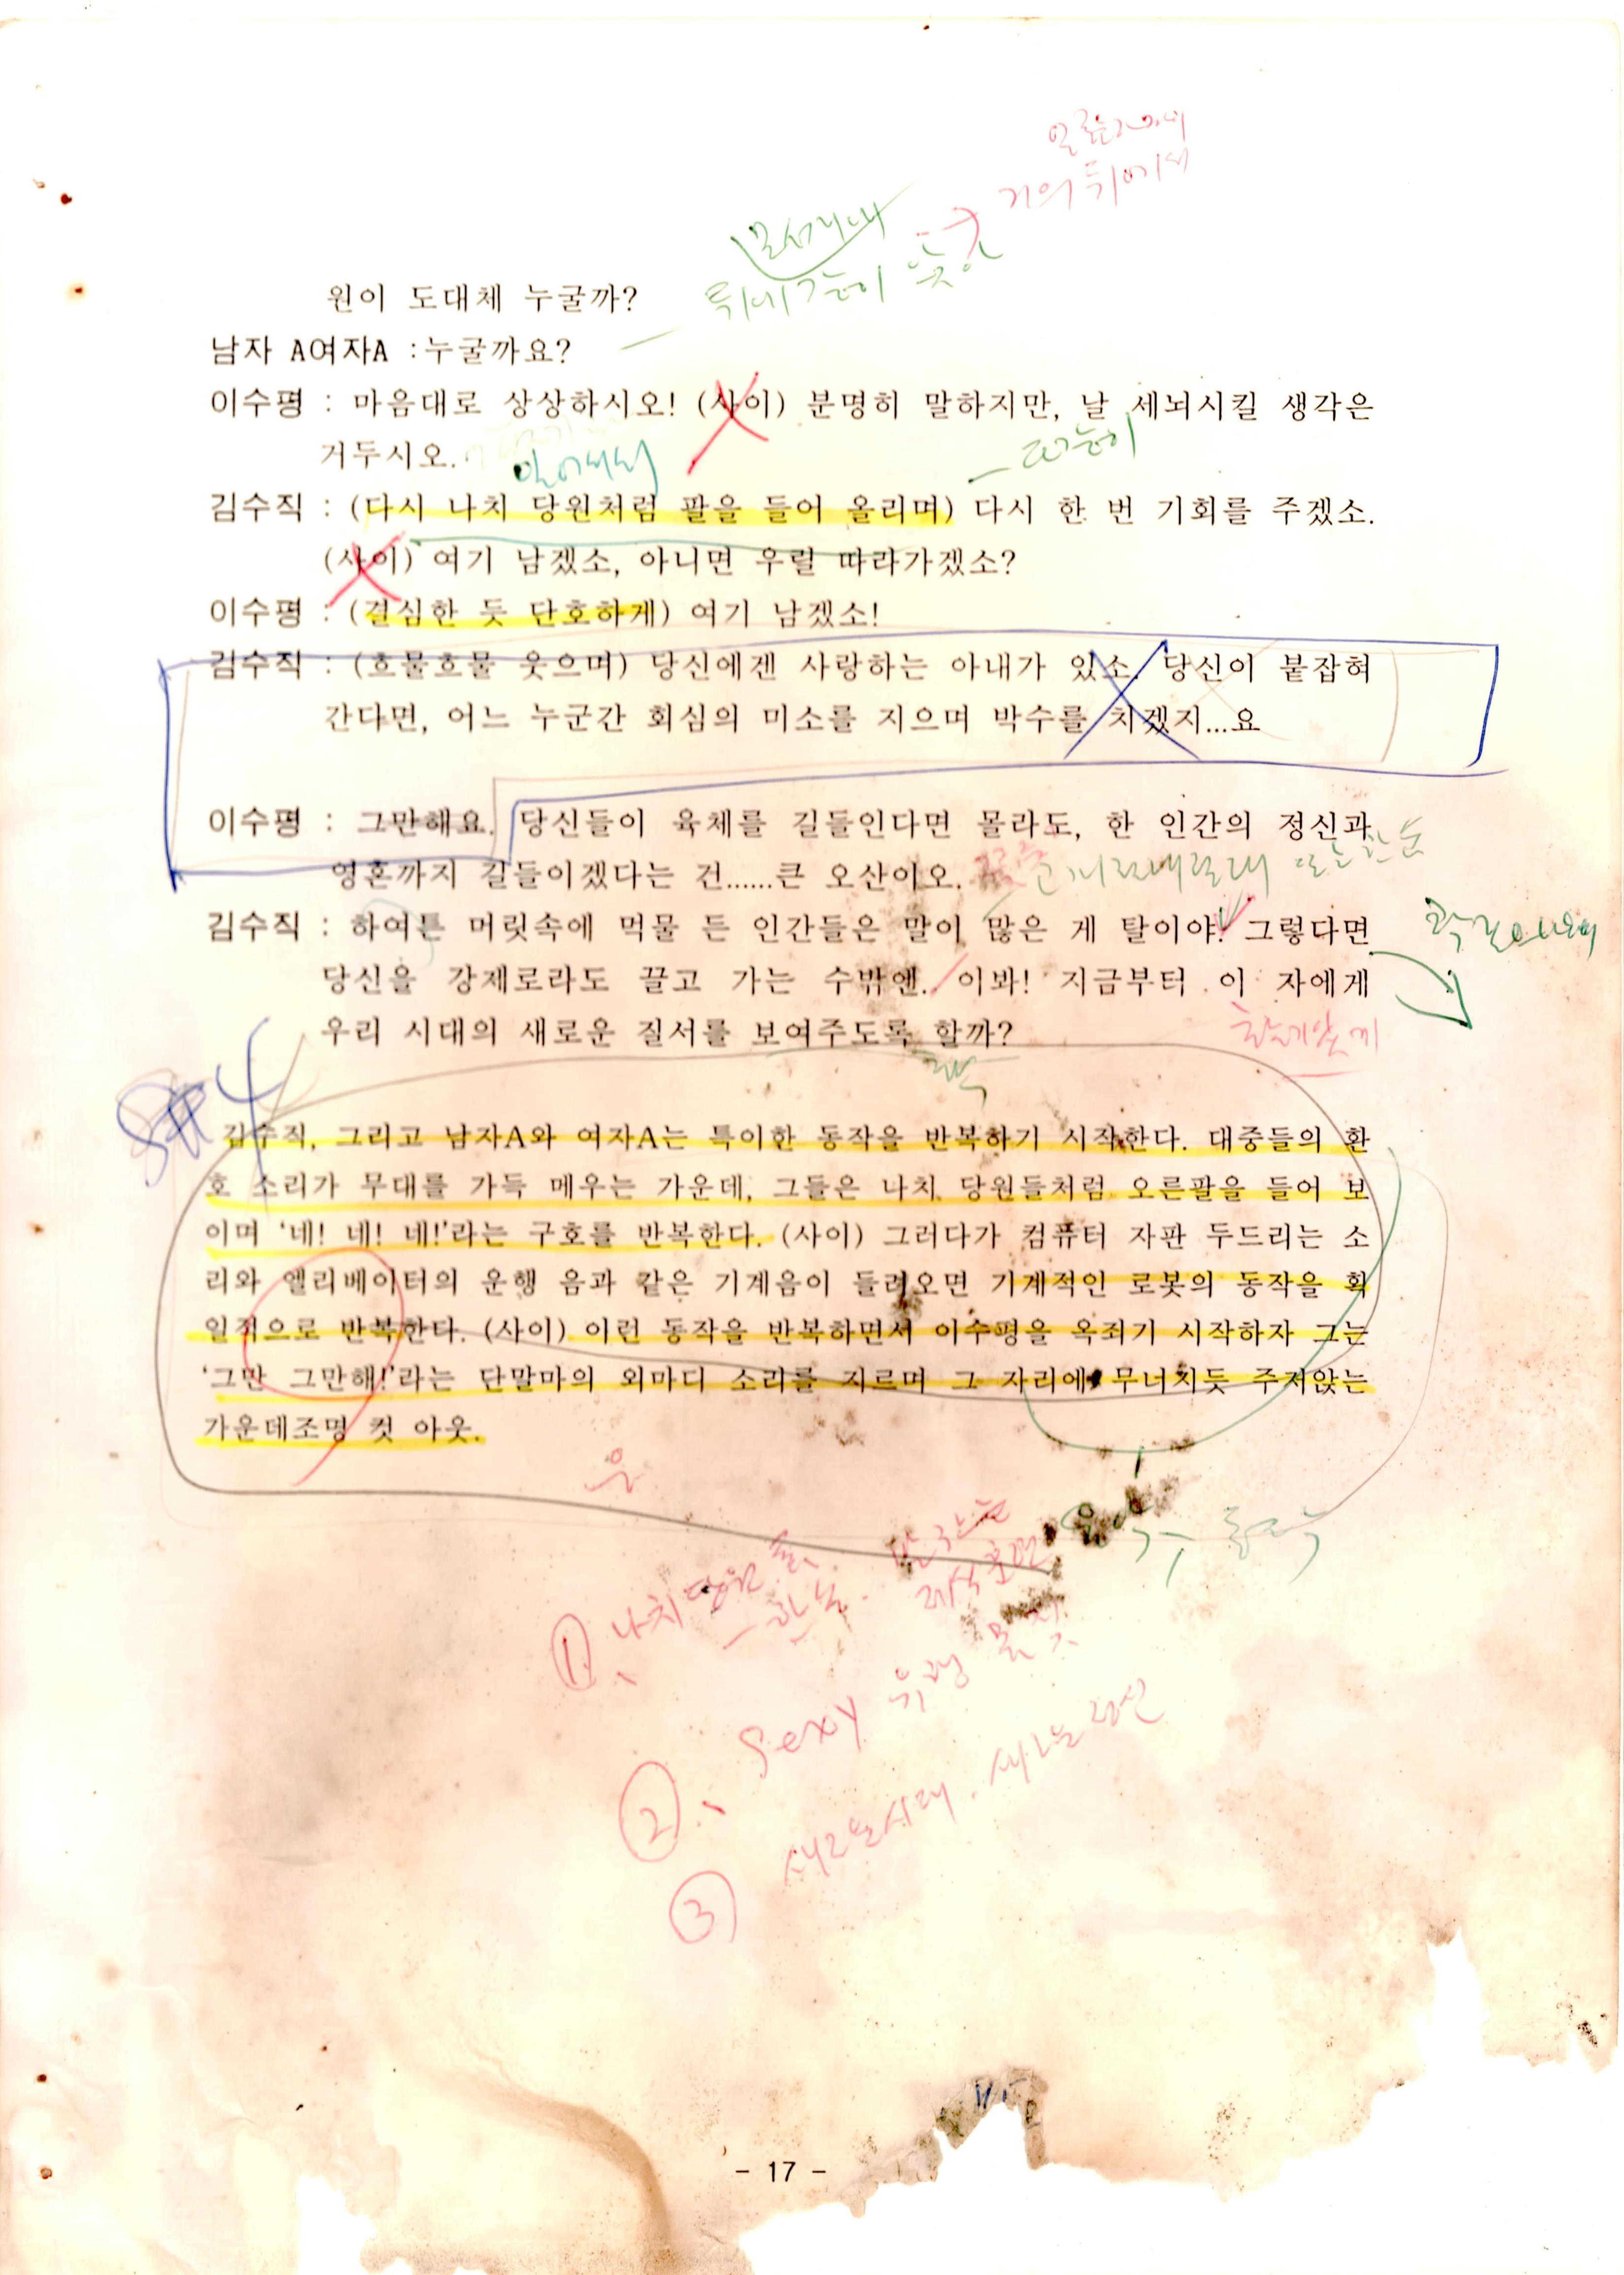 원이 도대체 누굴까?
남자 A여자A : 누굴까요?
이수평 : 마음대로 상상하시오! (사이) 분명히 말하지만, 날 세뇌시킬 생각은
거두시오.
김수직 : (다시 나치 당원처럼 팔을 들어 올리며) 다시 한 번 기회를 주겠소.
(사이) 여기 남겠소, 아니면 우릴 따라가겠소?
이수평 : (결심한 듯 단호하게) 여기 남겠소!
김수직 : (흐물흐물 웃으며) 당신에겐 사랑하는 아내가 있소. 당신이 붙잡혀
간다면, 어느 누군간 회심의 미소를 지으며 박수를 치겠지...요
이수평 : 그만해요. 당신들이 육체를 길들인다면 몰라도, 한 인간의 정신과
영혼까지 길들이겠다는 건......큰 오산이오.
김수직 : 하여튼 머릿속에 먹물 든 인간들은 말이 많은 게 탈이야! 그렇다면
당신을 강제로라도 끌고 가는 수밖엔. 이봐! 지금부터 이 자에게
우리 시대의 새로운 질서를 보여주도록 할까?
김수직, 그리고 남자A와 여자A는 특이한 동작을 반복하기 시작한다. 대중들의 환
호 소리가 무대를 가득 메우는 가운데, 그들은 나치 당원들처럼 오른팔을 들어 보
이며 '네! 네! 네!'라는 구호를 반복한다. (사이) 그러다가 컴퓨터 자판 두드리는 소
리와 엘리베이터의 운행 음과 같은 기계음이 들려오면 기계적인 로봇의 동작을 획
일적으로 반복한다. (사이) 이런 동작을 반복하면서 이수평을 옥죄기 시작하자 그는
'그만 그만해!'라는 단말마의 외마디 소리를 지르며 그 자리에 무너지듯 주저앉는
가운데조명 컷 아웃.
① 나치
② Sexy
③
- 17 -